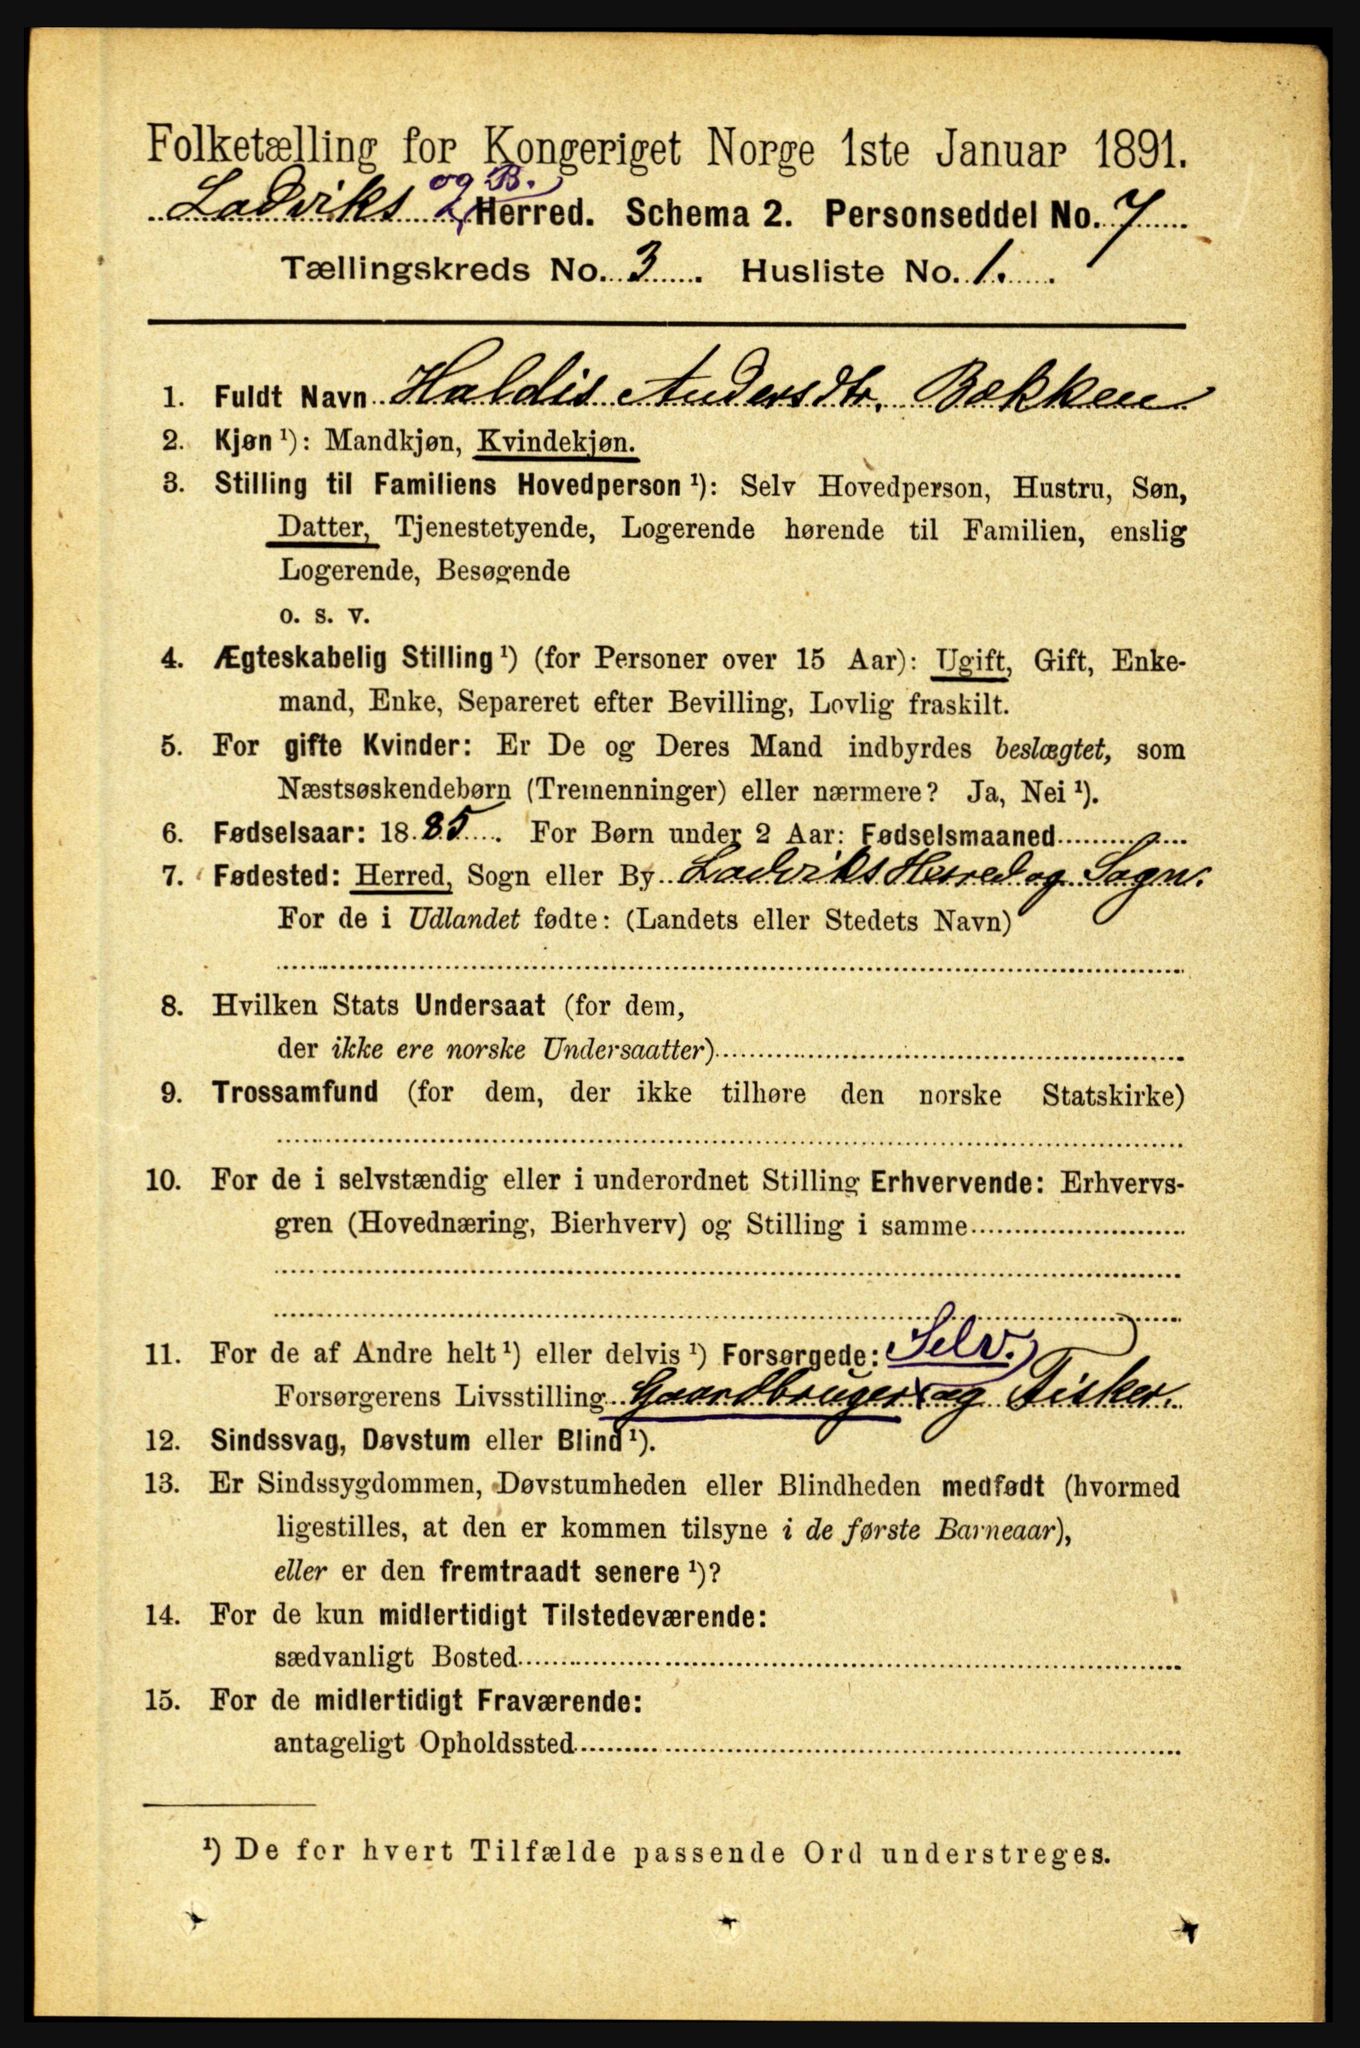 Folketælling for Kongeriget Norge 1ste Januar 1891.
og B.
Ladviks Herred. Schema 2. Personseddel No. 7
Tællingskreds No. 3. Husliste No. 1.
1. Fuldt Navn Haldis Andersdtr. Bækken
2. Kjøn ¹): Mandkjøn, Kvindekjøn.
3. Stilling til Familiens Hovedperson ¹): Selv Hovedperson, Hustru, Søn,
Datter, Tjenestetyende, Logerende hørende til Familien, enslig
Logerende, Besøgende
o. s. v.
4. Ægteskabelig Stilling ¹) (for Personer over 15 Aar): Ugift, Gift, Enke-
mand, Enke, Separeret efter Bevilling, Lovlig fraskilt.
5. For gifte Kvinder: Er De og Deres Mand indbyrdes beslægtet, som
Næstsøskendebørn (Tremenninger) eller nærmere? Ja, Nei ¹).
6. Fødselsaar: 1885. For Børn under 2 Aar: Fødselsmaaned
7. Fødested: Herred, Sogn eller By Ladviks Herred og Sogn.
For de i Udlandet fødte: (Landets eller Stedets Navn)
8. Hvilken Stats Undersaat (for dem,
der ikke ere norske Undersaatter)
9. Trossamfund (for dem, der ikke tilhøre den norske Statskirke)
10. For de i selvstændig eller i underordnet Stilling Erhvervende: Erhvervs-
gren (Hovednæring, Bierhverv) og Stilling i samme
11. For de af Andre helt ¹) eller delvis ¹) Forsørgede: Selv.
Forsørgerens Livsstilling Gaardbruger og Fisker.
12. Sindssvag, Døvstum eller Blind ¹).
13. Er Sindssygdommen, Døvstumheden eller Blindheden medfødt (hvormed
ligestilles, at den er kommen tilsyne i de første Barneaar),
eller er den fremtraadt senere ¹)?
14. For de kun midlertidigt Tilstedeværende:
sædvanligt Bosted
15. For de midlertidigt Fraværende:
antageligt Opholdssted
¹) De for hvert Tilfælde passende Ord understreges.